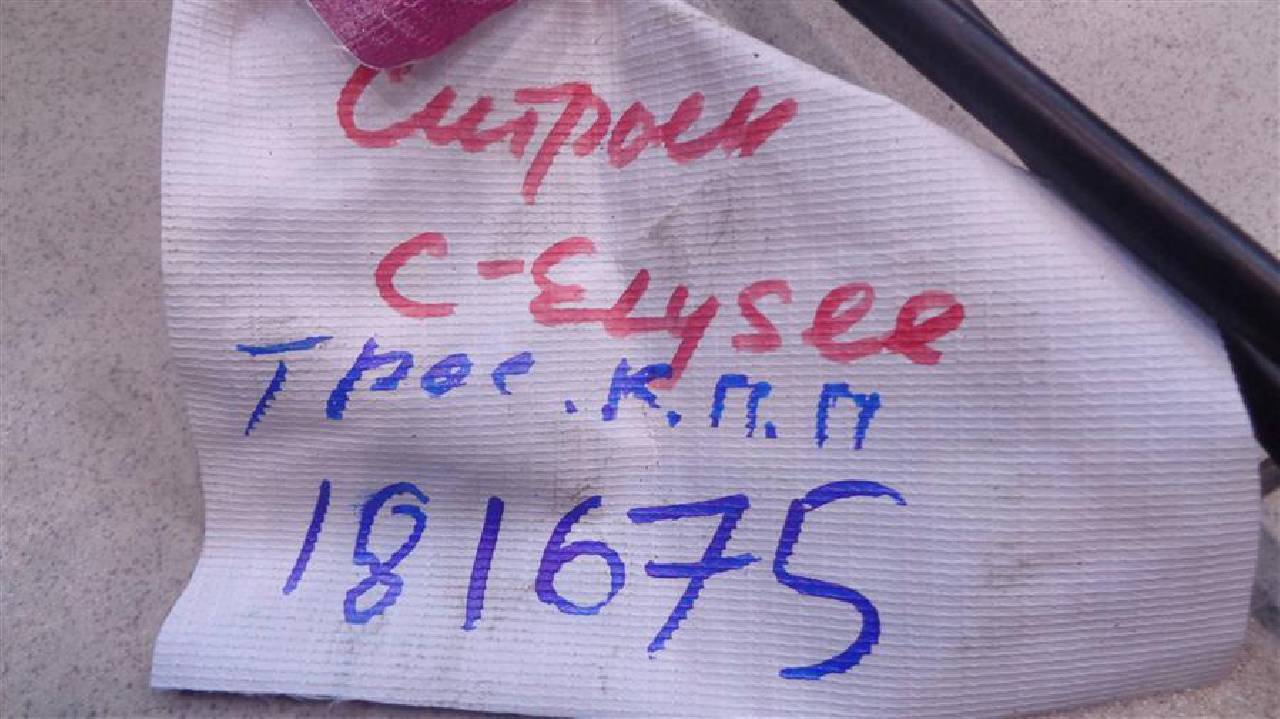 Ситроен
C-Elysee
Трос.К.П.П
181675